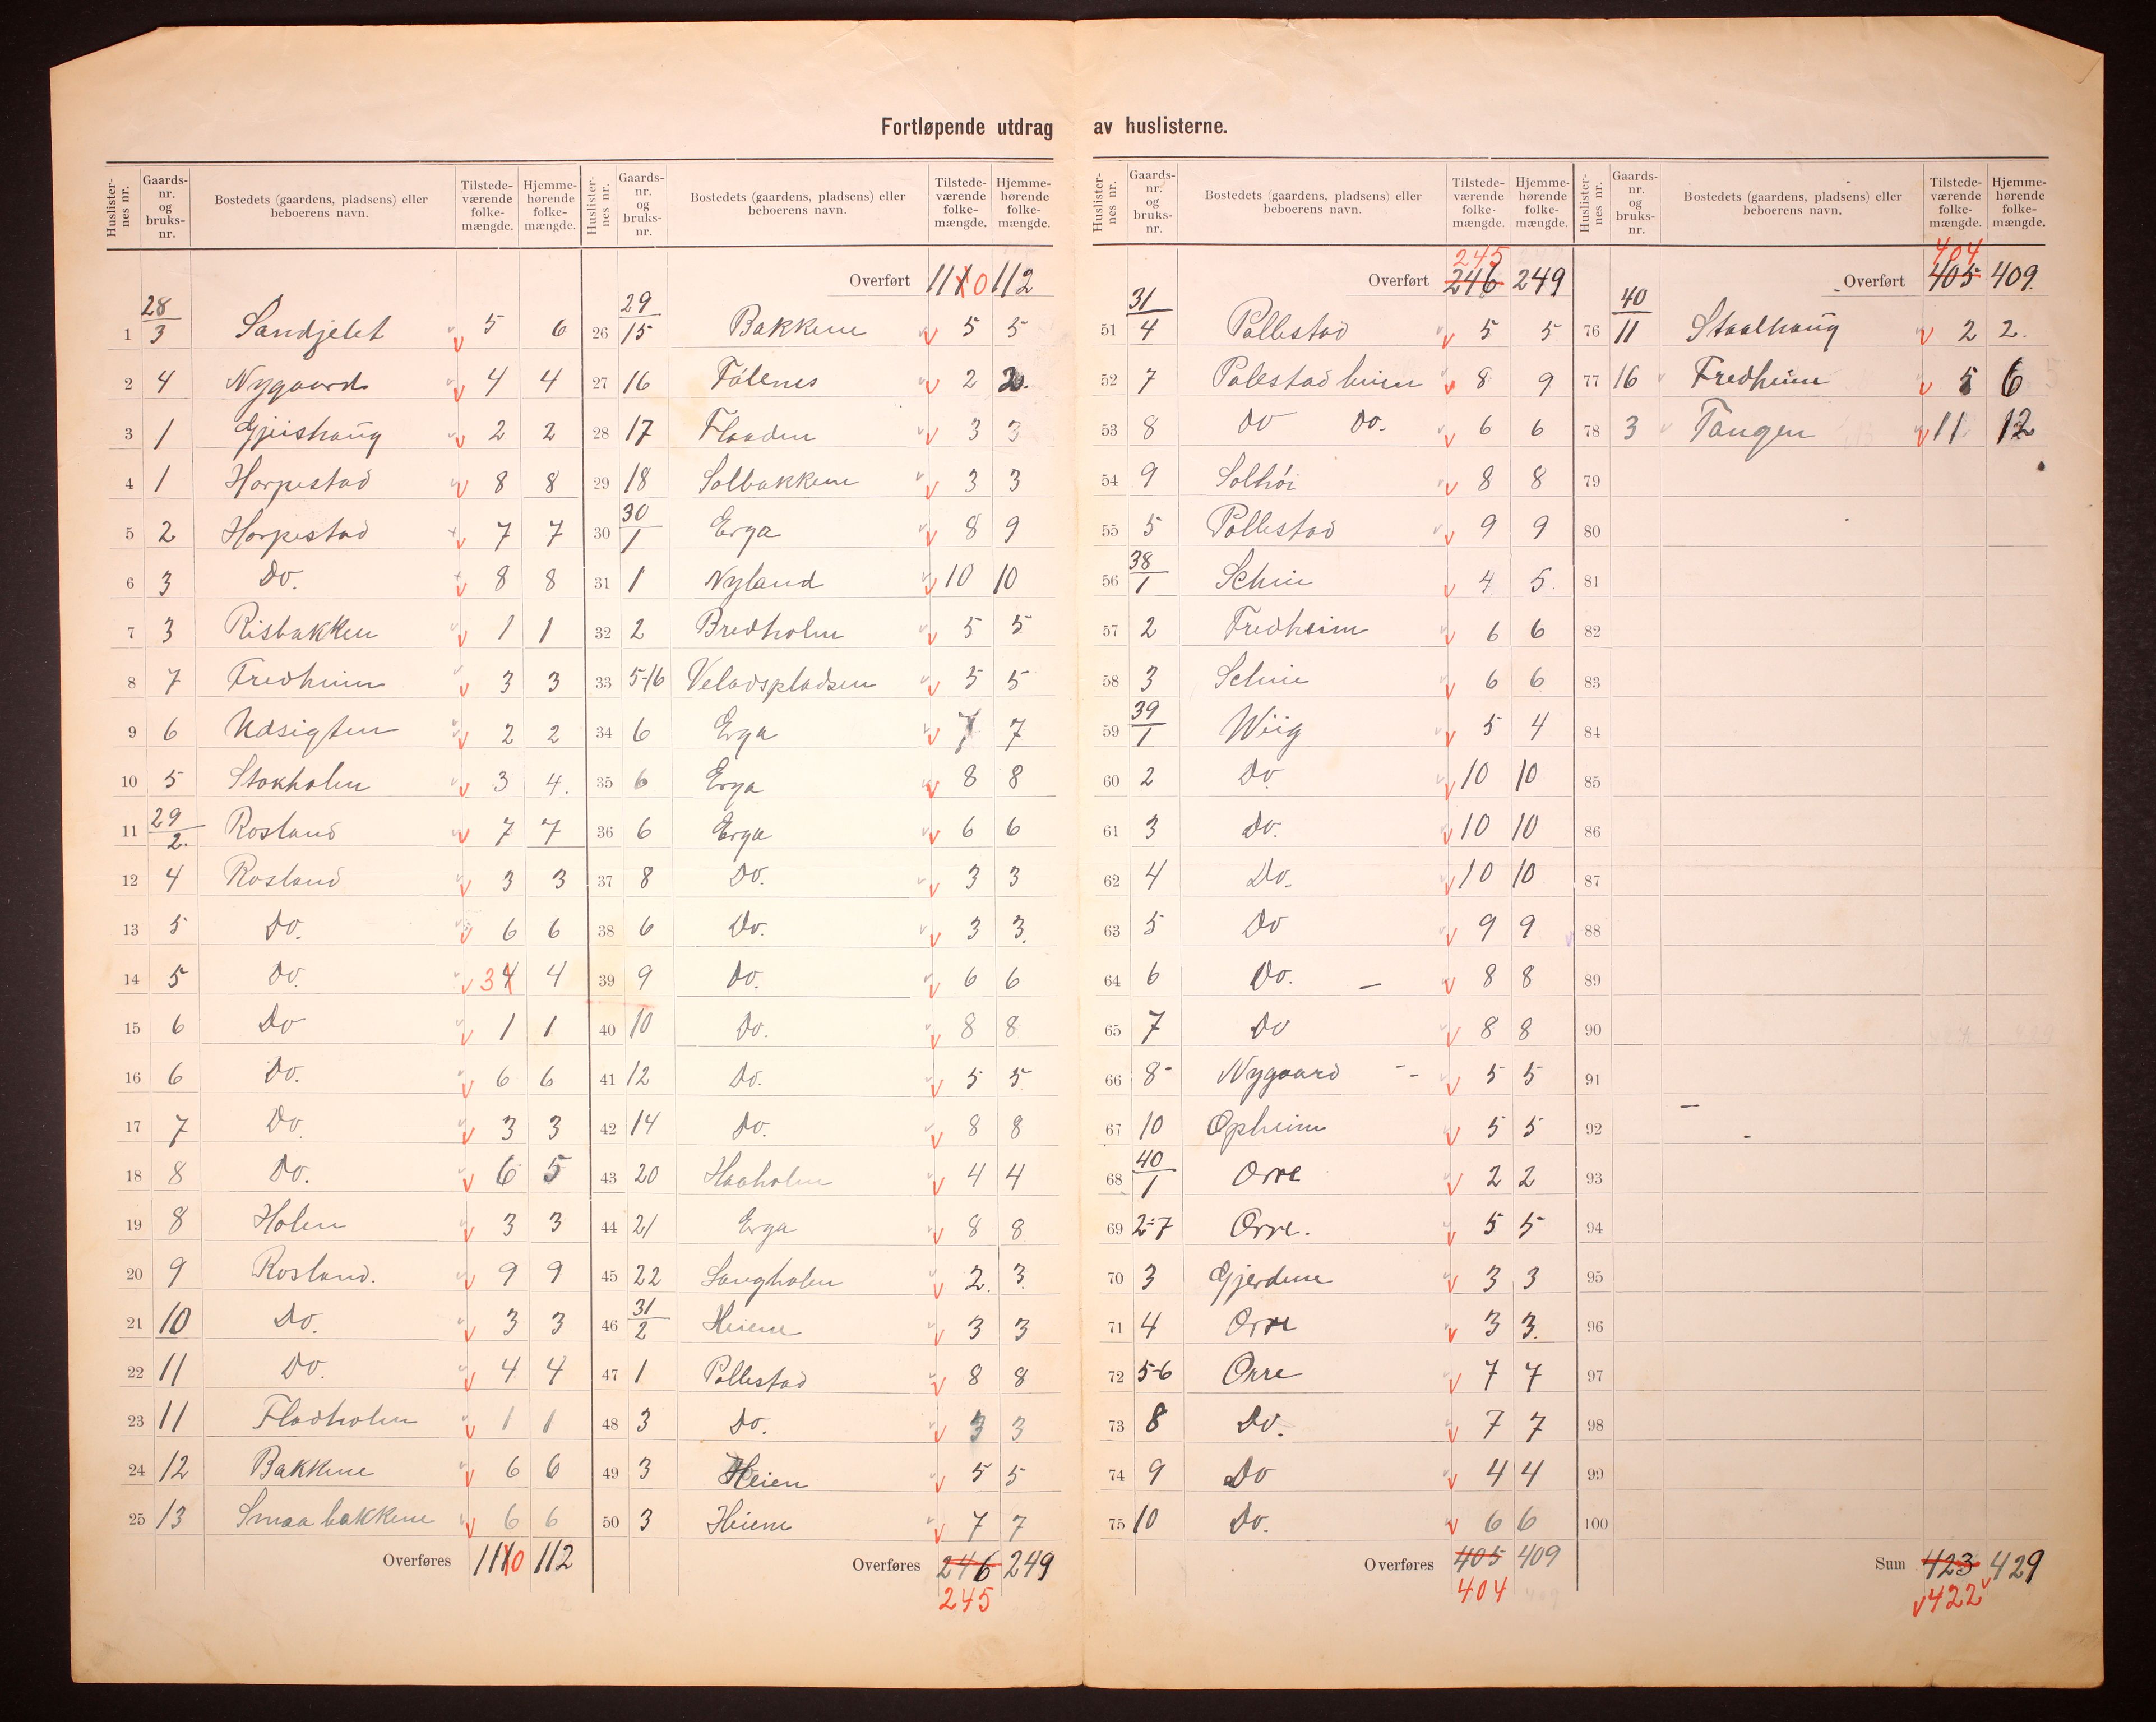 Fortløpende utdrag av huslisterne.
Huslisternes nr. Gaards-nr. og bruks-nr. Bostedets (gaardens, pladsens) eller beboerens navn. Tilstede-værende folke-mængde. Hjemme-hørende folke-mængde.
1 28/3 Sandjelet 5 6
2 4 Nygaard 4 4
3 1 Gjeishaug 2 2
4 1 Horpestad 8 8
5 2 Horpestad 7 7
6 3 Do. 8 8
7 3 Risbakken 1 1
8 7 Fredheim 3 3
9 6 Udsigten 2 2
10 5 Stokholm 3 4.
11 29/2. Rosland 7 7
12 4 Rosland 3 3
13 5 Do. 6 6
14 5 Do. 3 4 4
15 6 Do 1 1
16 6 Do. 6 6
17 7 Do. 3 3
18 8 Do. 6 5
19 8 Holen 3 3
20 9 Rosland. 9 9
21 10 Do. 3 3
22 11 Do. 4 4
23 11 Fladholm 1 1
24 12 Bakkene 6 6
25 13 Smaabakkene 6 6
Overføres 111 0 112
Huslisternes nr. Gaards-nr. og bruks-nr. Bostedets (gaardens, pladsens) eller beboerens navn. Tilstede-værende folke-mængde. Hjemme-hørende folke-mængde.
Overført 111 0 112
26 29/15 Bakkene 5 5
27 16 2 2.
28 17 Flaaden 3 3
29 18 Solbakken 3 3
30 30/1 Erga 8 9
31 1 Nyland 10 10
32 2 Bredholm 5 5
33 5-16 Veladspladsen 5 5
34 6 Erga 7 7
35 6 Erga 8 8
36 6 Erga 6 6
37 8 Do. 3 3
38 6 Do. 3 3.
39 9 Do. 6 6
40 10 Do. 8 8
41 12 Do. 5 5
42 14 Do. 8 8
43 20 Haaholm 4 4
44 21 Erga 8 8
45 22 Langholm 2. 3.
46 31/2 Heiene 3 3
47 1 Pollestad 8 8
48 3 Do. 3 3
49 3 Heien 5 5
50 3 Heiene 7 7
Overføres 246 249
245
Huslisternes nr. Gaards-nr. og bruks-nr. Bostedets (gaardens, pladsens) eller beboerens navn. Tilstede-værende folke-mængde. Hjemme-hørende folke-mængde.
245
Overført 246 249
51 31/4 Pollestad 5 5
52 7 Polestadheien 8 9
53 8 Do Do. 6 6
54 9 Solhøi 8 8
55 5 Pollestad 9 9
56 38/1 Selvie 4 5.
57 2 Fredheim 6 6
58 3 Selvie 6 6
59 39/1 Wiig 5 4
60 2 Do. 10 10
61 3 Do. 10 10
62 4 Do. 10 10
63 5 Do 9 9
64 6 Do. 8 8
65 7 Do 8 8
66 8 Nygaard 5 5
67 10 Opheim 5 5
68 40/1 Orre 2 2
69 2-7 Orre. 5 5
70 3 Gjerdene 3 3
71 4 Orre 3 3.
72 5-6 Orre 7 7
73 8 Do. 7 7
74 9 Do 4 4
75 10 Do. 6 6
Overføres 405 409
404
Huslisternes nr. Gaards-nr. og bruks-nr. Bostedets (gaardens, pladsens) eller beboerens navn. Tilstede-værende folke-mængde. Hjemme-hørende folke-mængde.
404
Overført 405 409.
76 40/11 Staalhaug 2 2.
77 16 Fredheim 5 6
78 3 Tangen 11 12
79
80
81
82
83
84
85
86
87
88
89
90
91
92
93
94
95
96
97
98
99
100
Sum 423 429
422